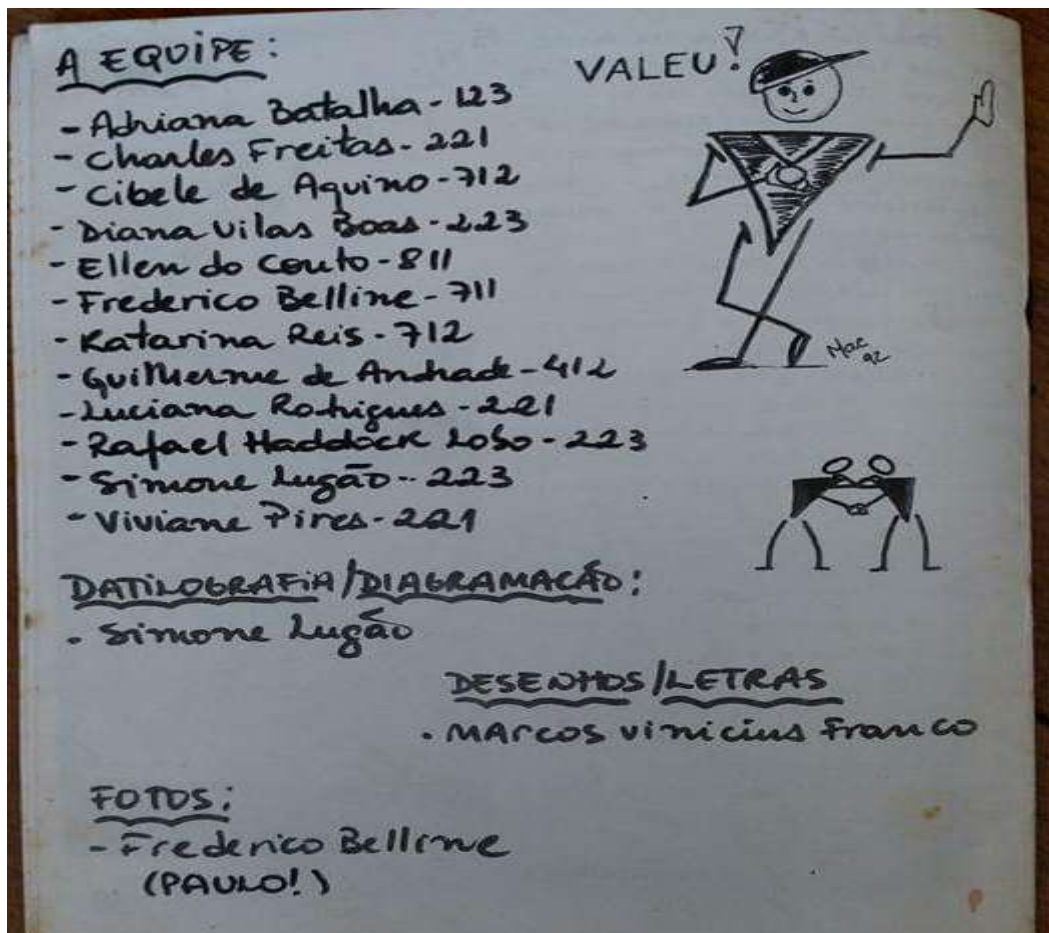 A EQUIPE:
VALEU!
- Adriana Batalha - 123
- Charles Freitas - 221
- Cibele de Aquino - 712
- Diana Vilas Boas - 223
- Ellen do Couto - 811
- Frederico Belline - 711
- Katarina Reis - 712
- Guilherme de Andrade - 412
- Luciana Rodrigues - 221
- Rafael Haddock Lobo - 223
- Simone Lugão - 223
- Viviane Pires - 221
Mac
92
DATILOGRAFIA/DIAGRAMAÇÃO:
. Simone Lugão
DESENHOS/LETRAS
. MARCOS VINICIUS Franco
FOTOS:
- Frederico Belline
(PAULO!)